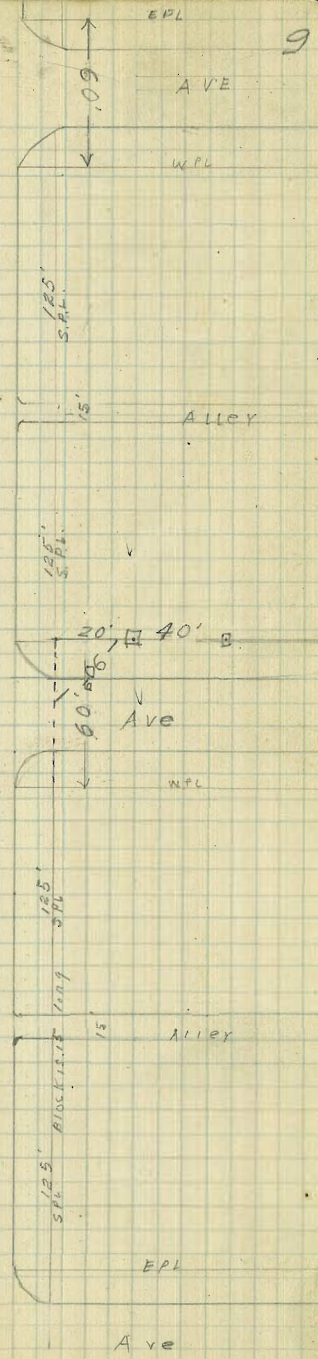 EPL
9
60'
AVE
WPL
125'
S.P.L.
15'
Alley
125'
S.P.L.
20' 40'
60'
Ave
WPL
125'
SPL
long
15'
Alley
Block is
125'
SPL
EPL
Ave